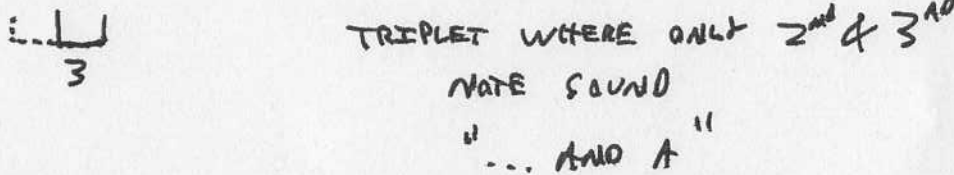 TRIPLET WHERE ONLY 2ND & 3RD
3
NOTE SOUND
"... AND A"